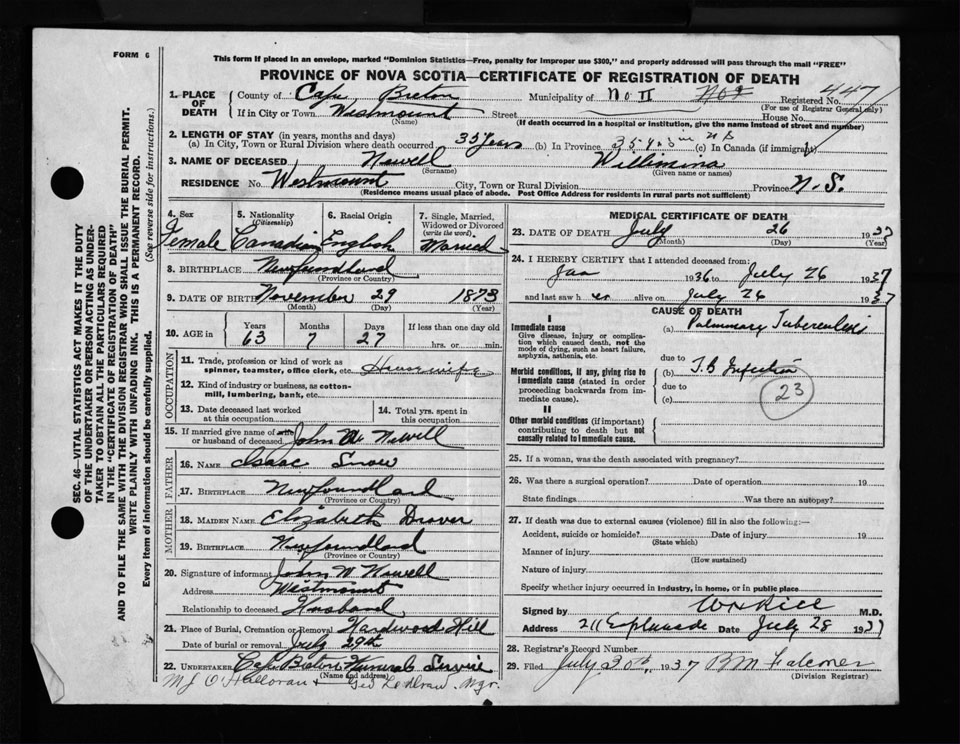 FORM 6
This form if placed in an envelope, marked "Dominion Statistics—Free, penalty for improper use $300," and properly addressed will pass through the mail "FREE"
PROVINCE OF NOVA SCOTIA—CERTIFICATE OF REGISTRATION OF DEATH
SEC. 46—VITAL STATISTICS ACT MAKES IT THE DUTY
OF THE UNDERTAKER OR PERSON ACTING AS UNDER-
TAKER TO OBTAIN ALL THE PARTICULARS REQUIRED
IN THE "CERTIFICATE OF REGISTRATION OF DEATH"
AND TO FILE THE SAME WITH THE DIVISION REGISTRAR WHO SHALL ISSUE THE BURIAL PERMIT.
WRITE PLAINLY WITH UNFADING INK. THIS IS A PERMANENT RECORD.
Every item of information should be carefully supplied. (See reverse side for instructions.)
1. PLACE OF DEATH County of Cape Breton Municipality of No II Registered No. 447
(For use of Registrar General only)
If in City or Town Westmount Street House No.
(Name) (If death occurred in a hospital or institution, give the name instead of street and number)
2. LENGTH OF STAY (in years, months and days)
(a) In City, Town or Rural Division where death occurred 35 Years (b) In Province 35 yrs in NS (c) In Canada (if immigrant)
3. NAME OF DECEASED Newell Willimina
(Surname) (Given name or names)
RESIDENCE No. Westmount City, Town or Rural Division Province N.S.
(Residence means usual place of abode. Post Office Address for residents in rural parts not sufficient)
4. Sex Female
5. Nationality (Citizenship) Canadian
6. Racial Origin English
7. Single, Married, Widowed or Divorced (write the word) Married
8. BIRTHPLACE Newfundland
(Province or Country)
9. DATE OF BIRTH November 29 1873
(Month) (Day) (Year)
10. AGE in Years 63 Months 7 Days 27 If less than one day old hrs. or min.
OCCUPATION
11. Trade, profession or kind of work as spinner, teamster, office clerk, etc. Housewife
12. Kind of industry or business, as cotton-mill, lumbering, bank, etc.
13. Date deceased last worked at this occupation
14. Total yrs. spent in this occupation
15. If married give name of wife or husband of deceased John W Newell
FATHER
16. NAME Isaac Snow
17. BIRTHPLACE Newfoundland
(Province or Country)
MOTHER
18. MAIDEN NAME Elizabeth Drover
19. BIRTHPLACE Newfoundland
(Province or Country)
20. Signature of informant John W Newell
Address Westmount
Relationship to deceased Husband
21. Place of Burial, Cremation or Removal Hardwood Hill
Date of burial or removal July 29th
22. UNDERTAKER Cape Breton Funeral Service
(Name and address)
M J O'Halloran Mgr.
MEDICAL CERTIFICATE OF DEATH
23. DATE OF DEATH July 26 1937
(Month) (Day) (Year)
24. I HEREBY CERTIFY that I attended deceased from:
Jan 1936 to July 26 1937
and last saw her alive on July 26 1937
CAUSE OF DEATH
I
Immediate cause
Give disease, injury or complication which caused death, not the mode of dying, such as heart failure, asphyxia, asthenia, etc.
(a) Pulmonary Tuberculosis
due to
Morbid conditions, if any, giving rise to immediate cause (stated in order proceeding backwards from immediate cause).
(b) T.B Infection
due to
(c)
23
II
Other morbid conditions (if important) contributing to death but not causally related to immediate cause.
25. If a woman, was the death associated with pregnancy?
26. Was there a surgical operation? Date of operation 19
State findings Was there an autopsy?
27. If death was due to external causes (violence) fill in also the following:—
Accident, suicide or homicide? Date of injury 19
(State which)
Manner of injury
(How sustained)
Nature of injury
Specify whether injury occurred in industry, in home, or in public place
Signed by M.D.
Address 211 Esplanade Date July 28 1937
28. Registrar's Record Number
29. Filed July 30th 1937 B M Falconer
(Division Registrar)